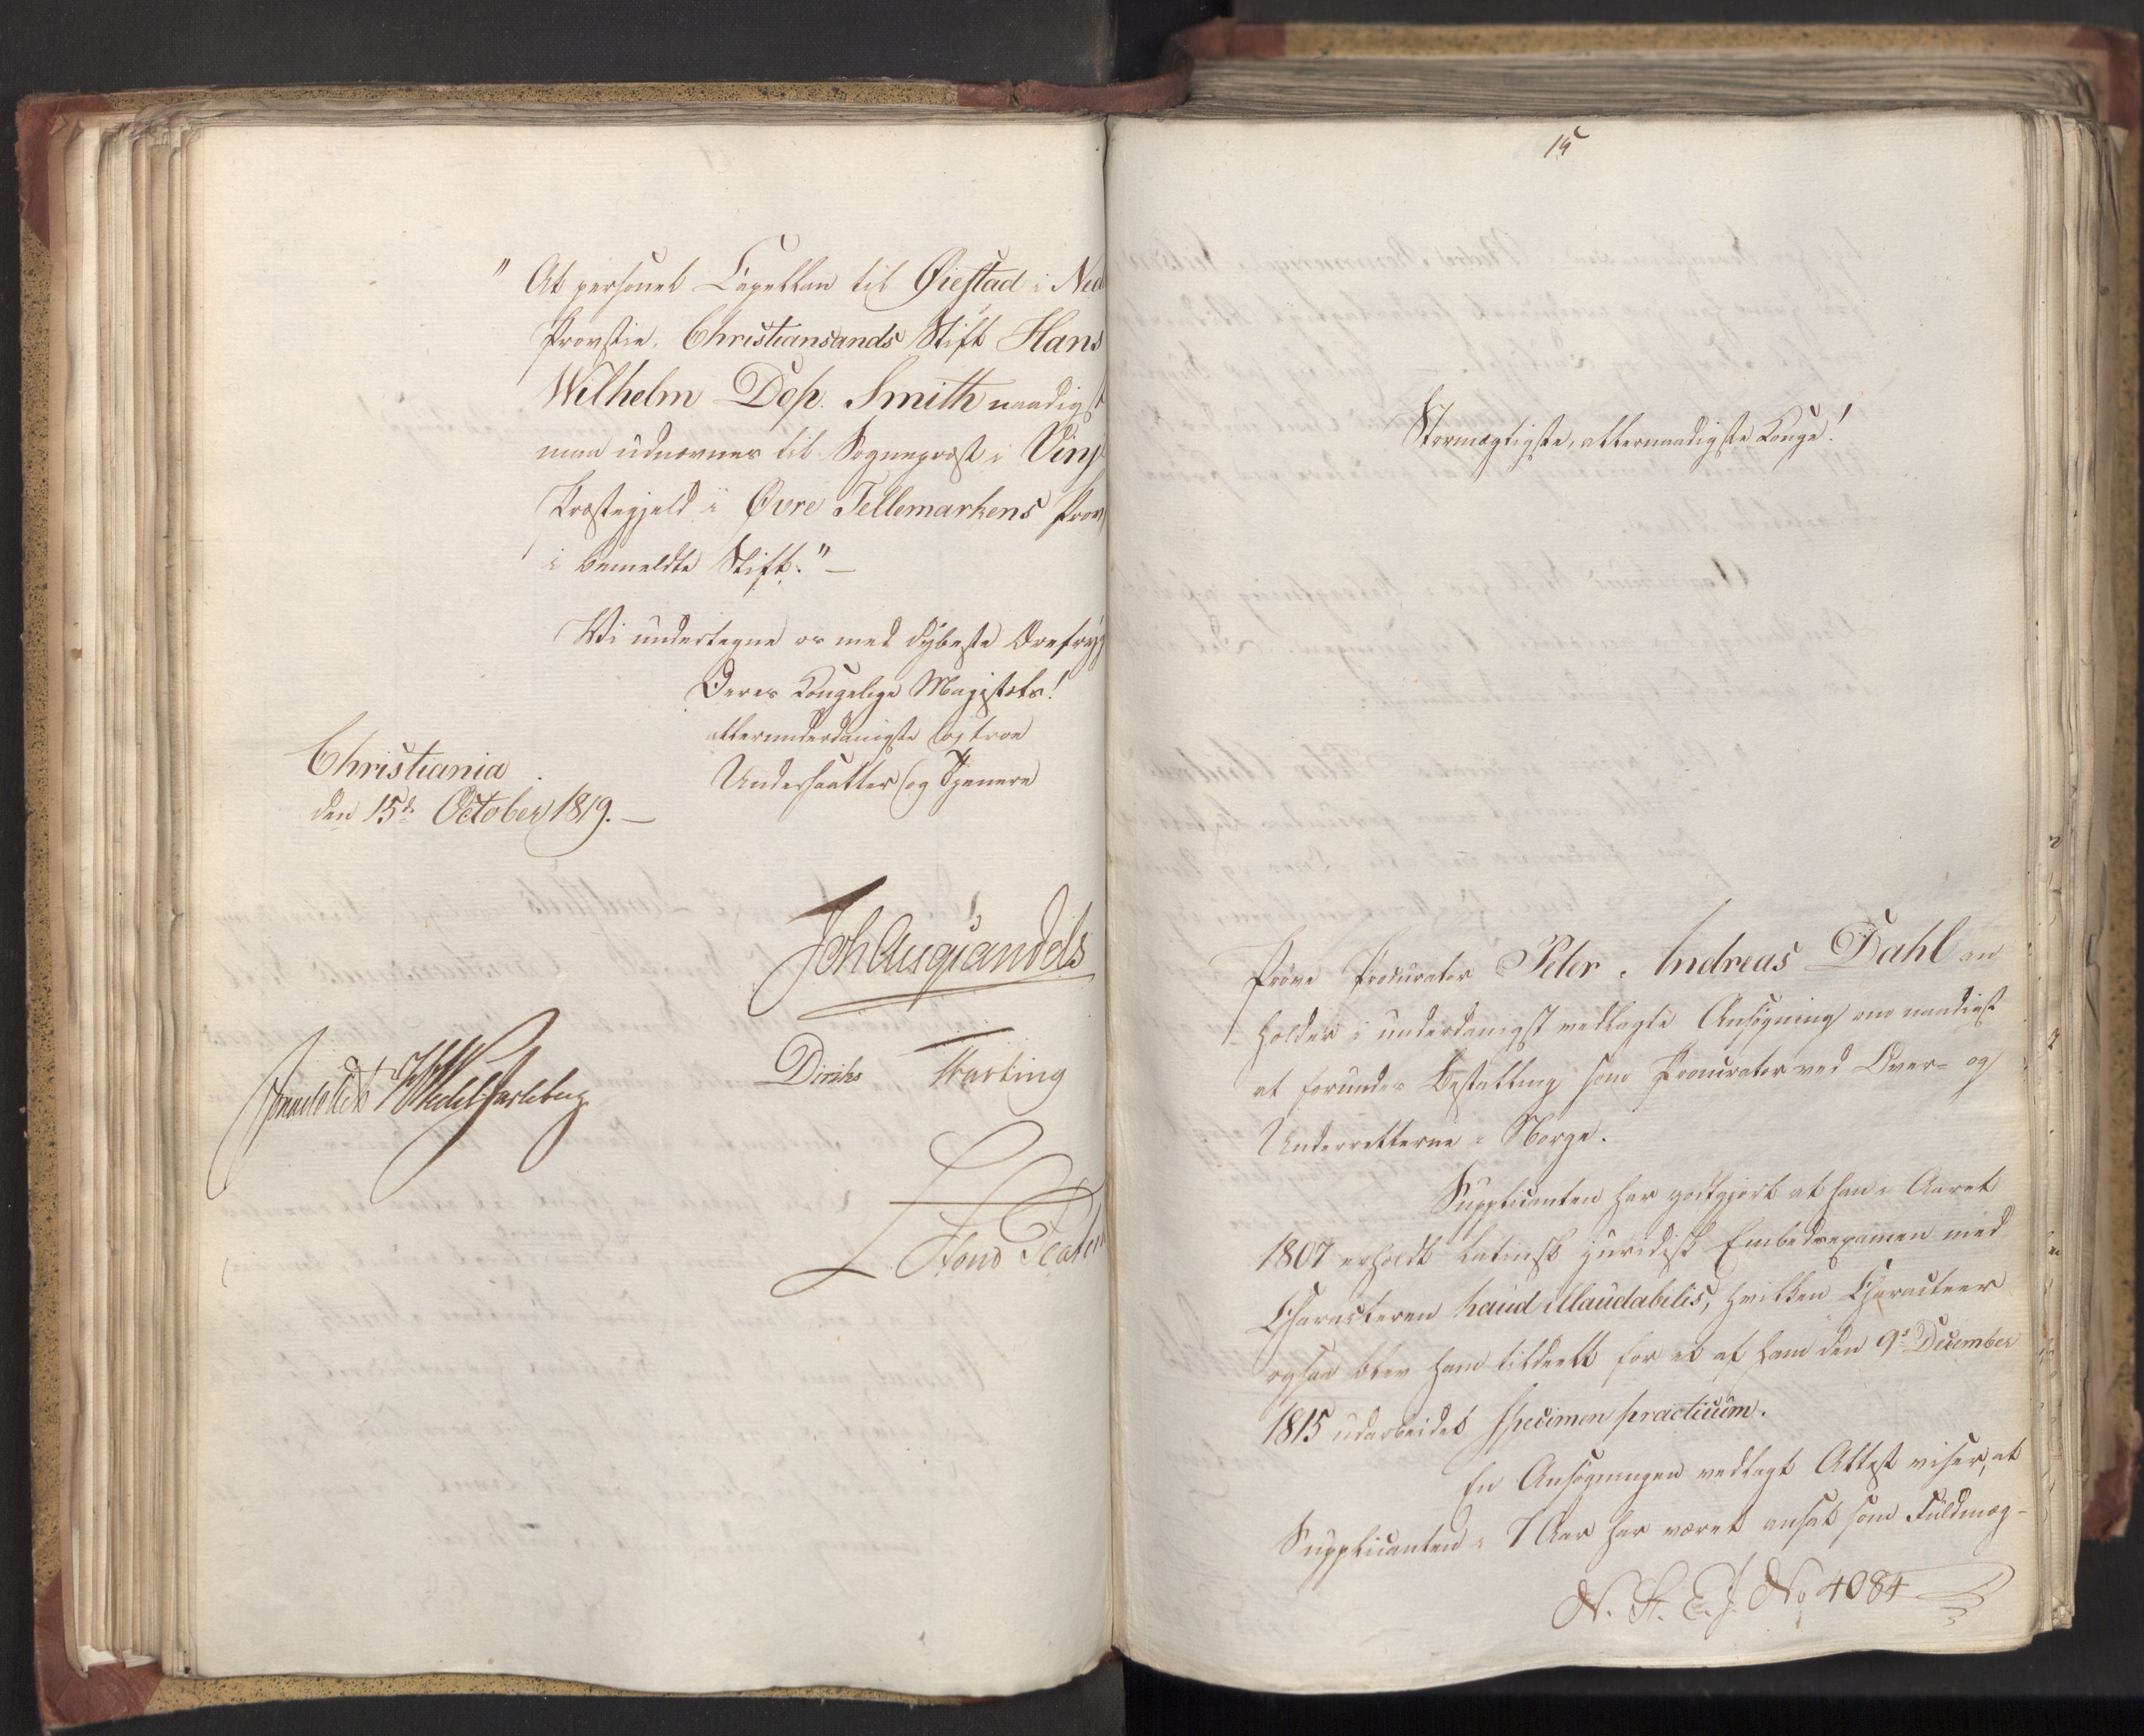 " At personel Capellan til Øiestad i Ned
Provstie, Christiansands Stift Hans
Wilhelm Dop. Smith naadigst
maa udnævnes til Sognepræst i Vinj
Præstegjeld i Øvre Tellemarkens Prov
i bemeldte Stift." —
Vi undertegne os med dybeste Ærefryg
Deres Kongelige Majestæts!
allerunderdanigste og troe
Undersaatter og Tjenere
Christiania
den 15de October 1819. —
Joh Aug Sandels
Diriks Krogh
Sommerfeldt HWedel Jarlsberg
Fasting
15
Stormægtigste, allernaadigste Konge!
Prøve Procurator Peter Andreas Dahl an
holder i underdanigst vedlagte Ansøgning om naadigst
at forundes Bestalling som Procurator ved Over- og
Underretterne i Norge.
Supplicanten har godtgjort at han i Aaret
1807 erholdt latinsk juridisk Embedsexamen med
Characteren haud illaudabilis, hvilken Characteer
ogsaa blev ham tildeelt for et af ham den 9de December
1815 udarbeidet Specimen practicum.
En Ansøgningen vedlagt Attest viser, at
Supplicanten i 7 Aar har været ansat som Fuldmæg-
N. St. E. J. No 4084